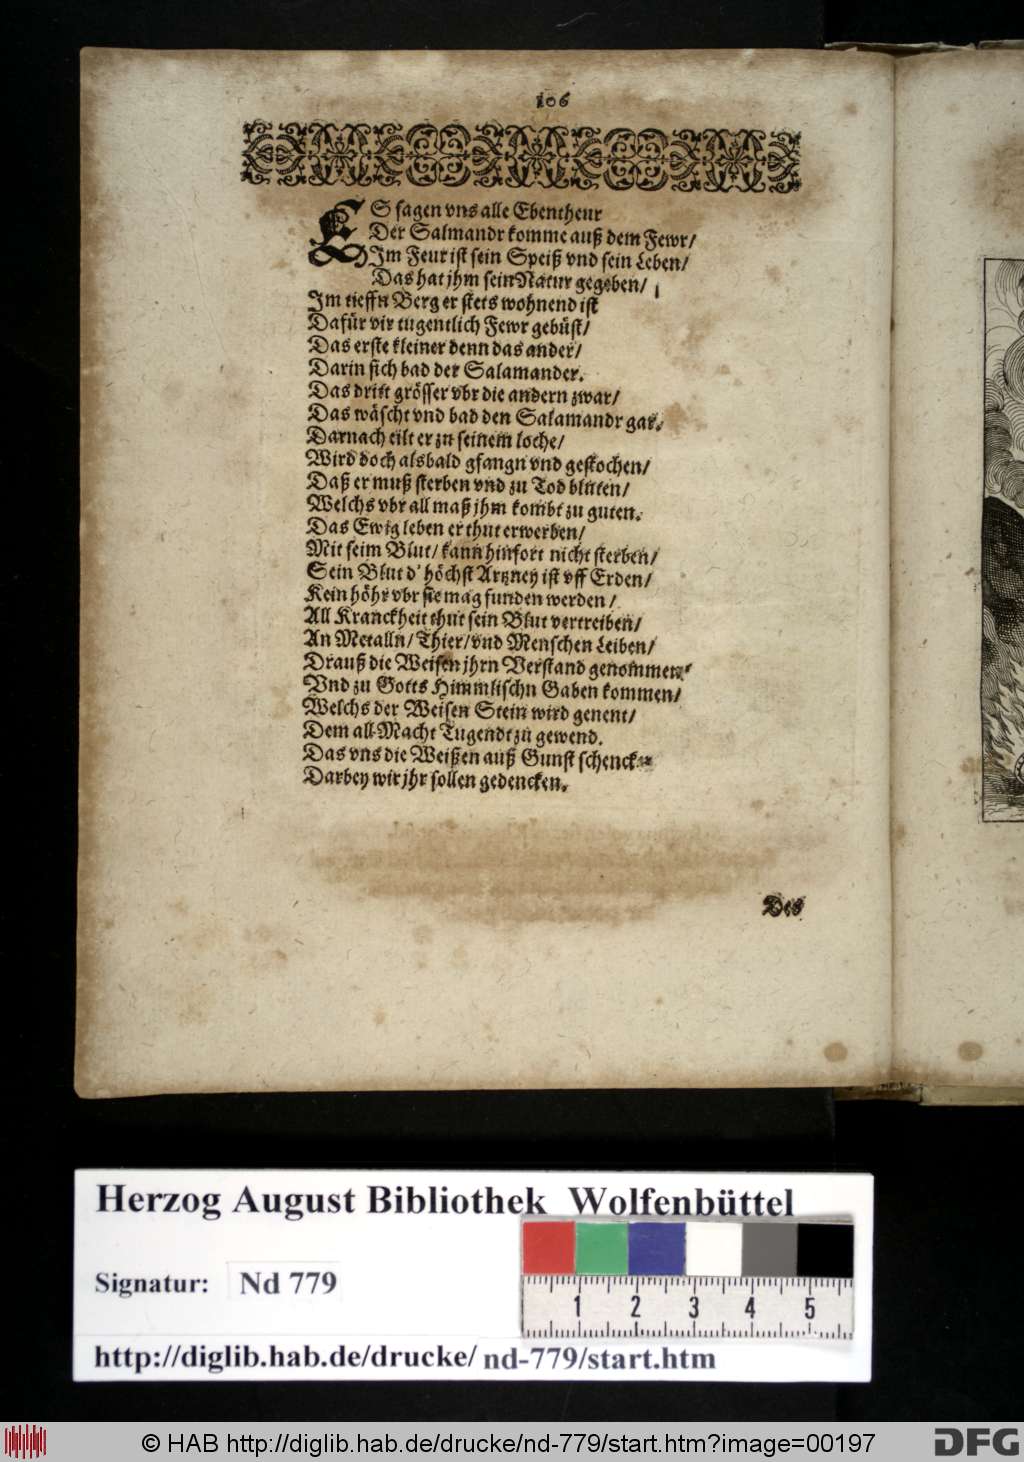 106
ES sagen vns alle Ebentheur
Der Salmandr komme auß dem Fewr/
Im Feur ist sein Speiß vnd sein Leben/
Das hat jhm sein Natur gegeben/
Im tieffn Berg er stets wohnend ist
Dafür vir tugentlich Fewr gebüst/
Das erste kleiner denn das ander/
Darin sich bad der Salamander.
Das dritt grösser vbr die andern zwar/
Das wäscht vnd bad den Salamandr gar.
Darnach eilt er zu seinem loche/
Wird doch alsbald gfangn vnd gestochen/
Daß er muß sterben vnd zu Tod bluten/
Welchs vbr all maß jhm kombt zu guten.
Das Ewig leben er thut erwerben/
Mit seim Blut/ kann hinfort nicht sterben/
Sein Blut d' höchst Artzney ist vff Erden/
Kein höhr vbr sie mag funden werden/
All Kranckheit thut sein Blut vertreiben/
An Metalln/ Thier/ vnd Menschen Leiben/
Drauß die Weisen jhrn Verstand genommen/
Vnd zu Gotts Himmlischn Gaben kommen/
Welchs der Weisen Stein wird genent/
Dem all-Macht Tugendt zu gewend.
Das vns die Weißen auß Gunst schencken
Darbey wir jhr sollen gedencken.
Des
Herzog August Bibliothek Wolfenbüttel
Signatur: Nd 779
1 2 3 4 5
http://diglib.hab.de/drucke/ nd-779/start.htm
© HAB http://diglib.hab.de/drucke/nd-779/start.htm?image=00197
DFG